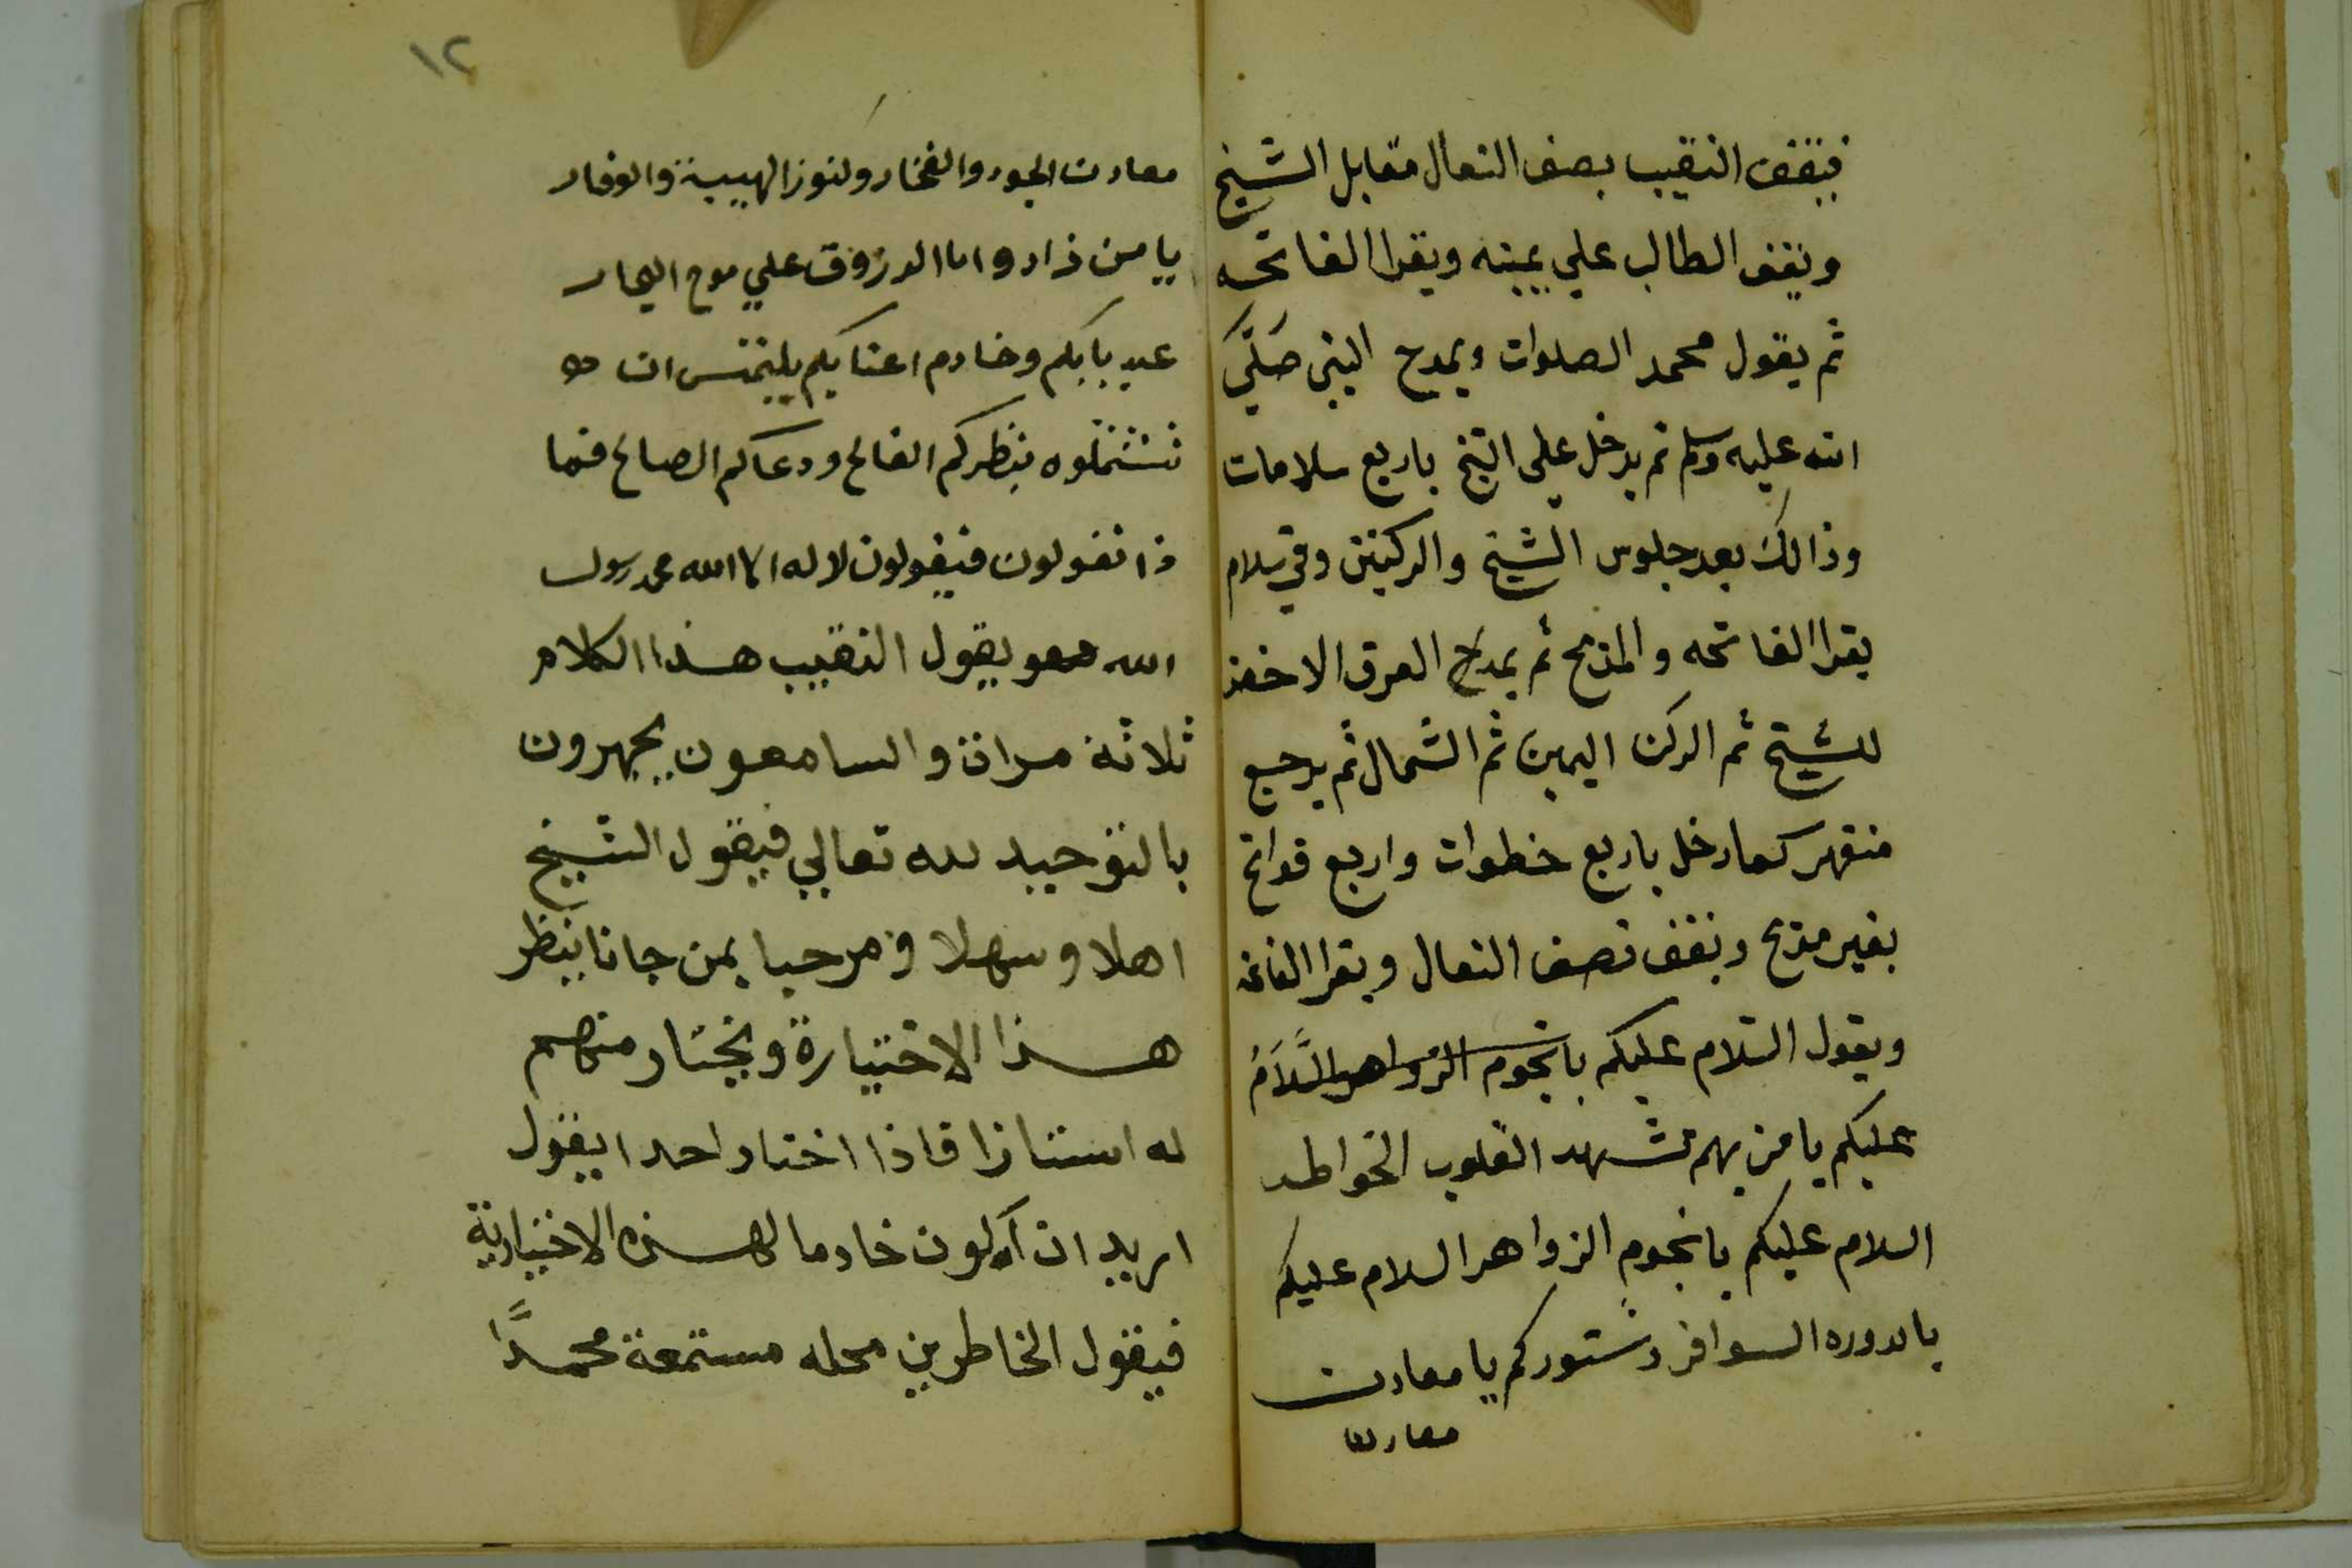 فيقف النقيب بصف النعال مقابل الشيخ
ويقف الطالب علي يمينه ويقرا الفاتحه
ثم يقول محمد الصلوات ويمدح النبي صَلَّي
الله عليه وسلم ثم يدخل علي الشيخ باربع سلامات
وذالك بعد جلوس الشيخ والركنين وفي سلام
يقرا الفاتحه والمديح ثم يمدح العرق الاخضر
للشيخ ثم الركن اليمين ثم الشمال ثم يرجع
منقهر كما دخل باربع خطوات واربع فواتح
بغير مديح ويقف بصف النعال ويقرا الفاتحه
ويقول السلام عليكم يا نجوم الزواهر السَّلاَمُ
عليكم يا من بهم تشهد القلوب الخواطر
السلام عليكم يا نجوم الزواهر السلام عليكم
يا بدوره السوافر دستوركم يا معادن
معادن
١٢
معادن الجود والفخار وكنوز الهيبة والوقار
يا من زادوا اما الدر زوق علي موج البحار
عبد بابكم وخادم اعتابكم يلتمس ان
تشتملوه بنظركم الفالح ودعاكم الصالح فما
ذا تقولون فيقولون لا اله الا الله محمد رسول
الله وهو يقول النقيب هذا الكلام
ثلاثة مرات والسامعون يجهرون
بالتوحيد لله تعالي فيقول الشيخ
اهلا وسهلا ومرحبا بمن جانا ينظر
هذا الاختيارة ويختار منهم
له استاذا فاذا اختار احدا يقول
اريد ان أكون خادما لهذه الاختيارية
فيقول الخاطرين محله مستمعة محمدًّا